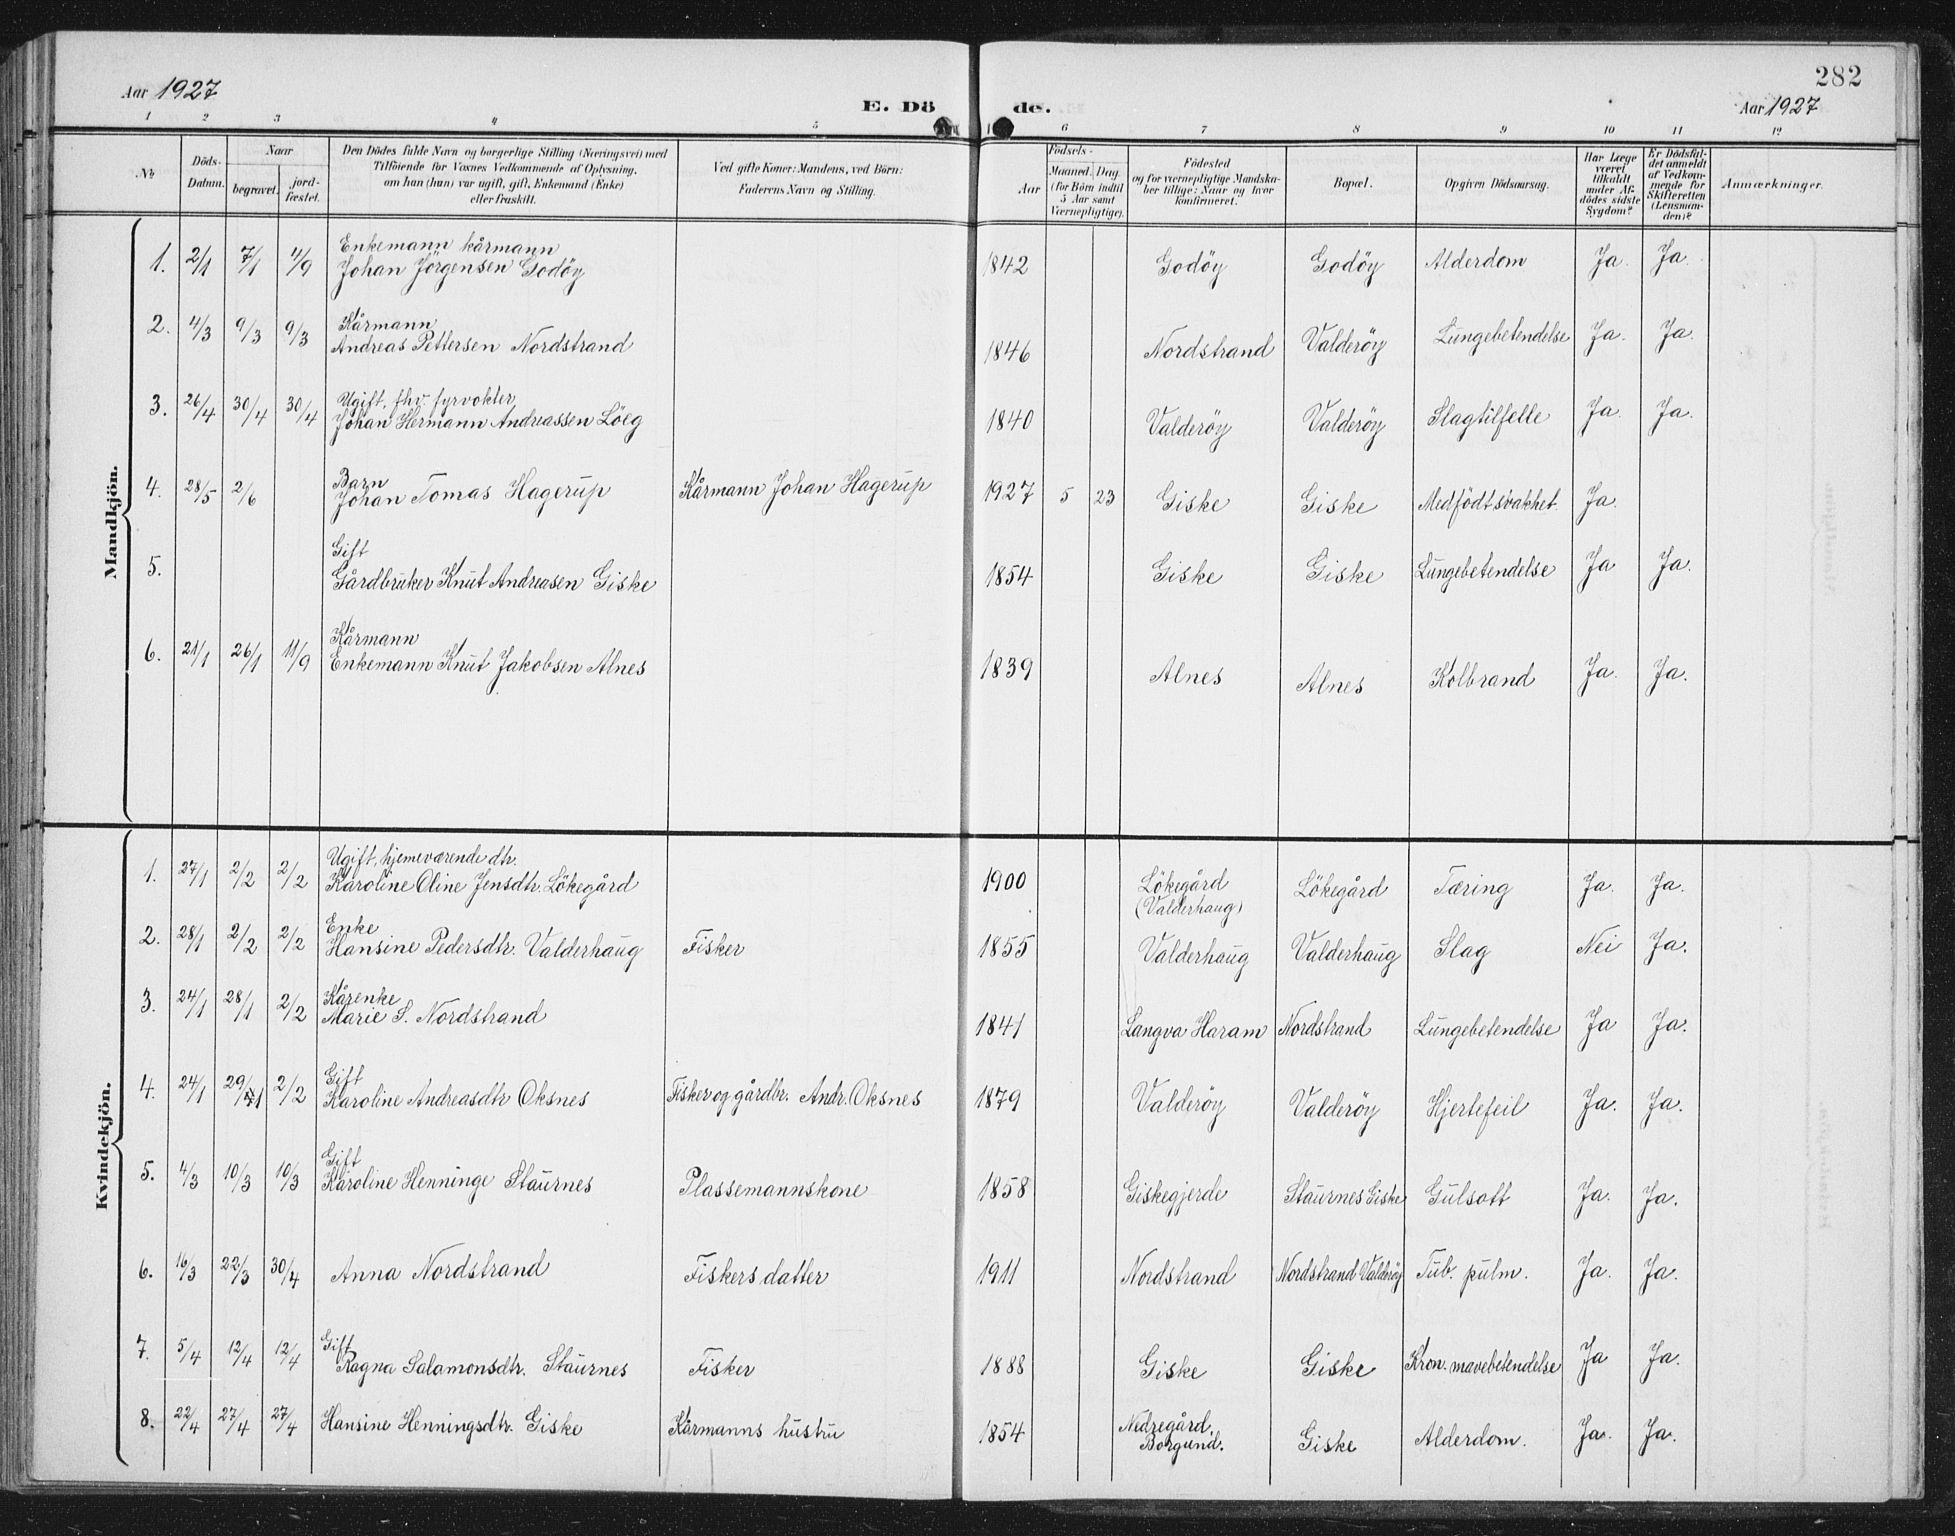 282
Aar 1927
E. Dö
de.
Aar 1927
1 2 3 4 5 6 7 8 9 10 11 12
No
Döds-
Datum.
Naar
begravet.
jord-
fæstet.
Den Dödes fulde Navn og borgerlige Stilling (Næringsvei) med
Tilföiende for Voxnes Vedkommende af Oplysning,
om han (hun) var ugift, gift, Enkemand (Enke)
eller fraskilt.
Ved gifte Koner: Mandens, ved Börn:
Faderens Navn og Stilling.
Födsels-
Aar
Maaned. Dag.
(for Börn indtil
5 Aar samt
Værnepligtige).
Födested
og for værnepligtige Mandska-
ber tillige: Naar og hvor
konfirmeret.
Bopæl.
Opgiven Dödsaarsag.
Har Læge
været
tilkaldt
under Af-
dödes sidste
Sygdom?
Er Dödsfal-
det anmeldt
af Vedkom-
mende for
Skifteretten
(Lensman-
den)?
Anmærkninger.
Mandkjön.
Enkemann kårmann
1. 2/1 7/1 4/9 Johan Jörgensen Godöy 1842 Godöy Godöy Alderdom Ja. Ja.
Kårmann
2. 4/3 9/3 9/3 Andreas Pettersen Nordstrand 1846 Nordstrand Valderöy Lungebetendelse Ja. Ja.
Ugift, fhv. fyrvokter
3. 26/4 30/4 30/4 Johan Hermann Andreassen Löeg 1840 Valderöy Valderöy Slagtilfelle Ja. Ja.
Barn
4. 28/5 2/6 Johan Tomas Hagerup Kårmann Johan Hagerup 1927 5 23 Giske Giske Medfödt svakhet. Ja.
Gift
5. Gårdbruker Knut Andreasen Giske 1854 Giske Giske Lungebetendelse Ja Ja.
Kårmann
6. 21/1 26/1 11/9 Enkemann Knut Jakobsen Alnes 1839 Alnes Alnes Kolbrand Ja. Ja.
Kvindekjön.
Ugift, hjemeværende dtr.
1. 27/1 2/2 2/2 Karoline Oline Jensdtr. Lökegård 1900 Lökegård Lökegård Tæring Ja. Ja.
(Valderhaug)
Enke
2. 28/1 2/2 2/2 Hansine Pedersdtr. Valderhaug Fisker 1855 Valderhaug Valderhaug Slag Nei Ja.
Kårenke
3. 24/1 28/1 2/2 Marie S. Nordstrand 1841 Langva Haram Nordstrand Lungebetendelse Ja Ja.
Gift
4. 24/1 29/1 2/2 Karoline Andreasdtr Oksnes Fisker og gårdbr. Andr. Oksnes 1879 Valderöy Valderöy Hjertefeil Ja. Ja.
Gift
5. 4/3 10/3 10/3 Karoline Henninge Staurnes Plassemannskone 1858 Giskegjerde Staurnes Giske Gulsott Ja. Ja.
6. 16/3 22/3 30/4 Anna Nordstrand Fiskers datter 1911 Nordstrand Nordstrand Valderöy Tub. pulm. Ja. Ja.
Gift
7. 5/4 12/4 12/4 Ragna Salamonsdtr. Staurnes Fisker 1888 Giske Giske Kron. mavebetendelse Ja Ja.
8. 22/4 27/4 27/4 Hansine Henningsdtr. Giske Kårmanns hustru 1854 Nedregård, Giske Alderdom. Ja. Ja.
Borgund.